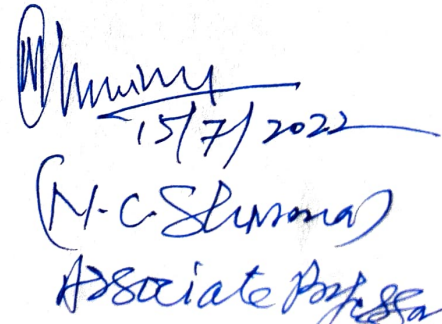 15/7/2022
(N.C. Sharma)
Associate Professor